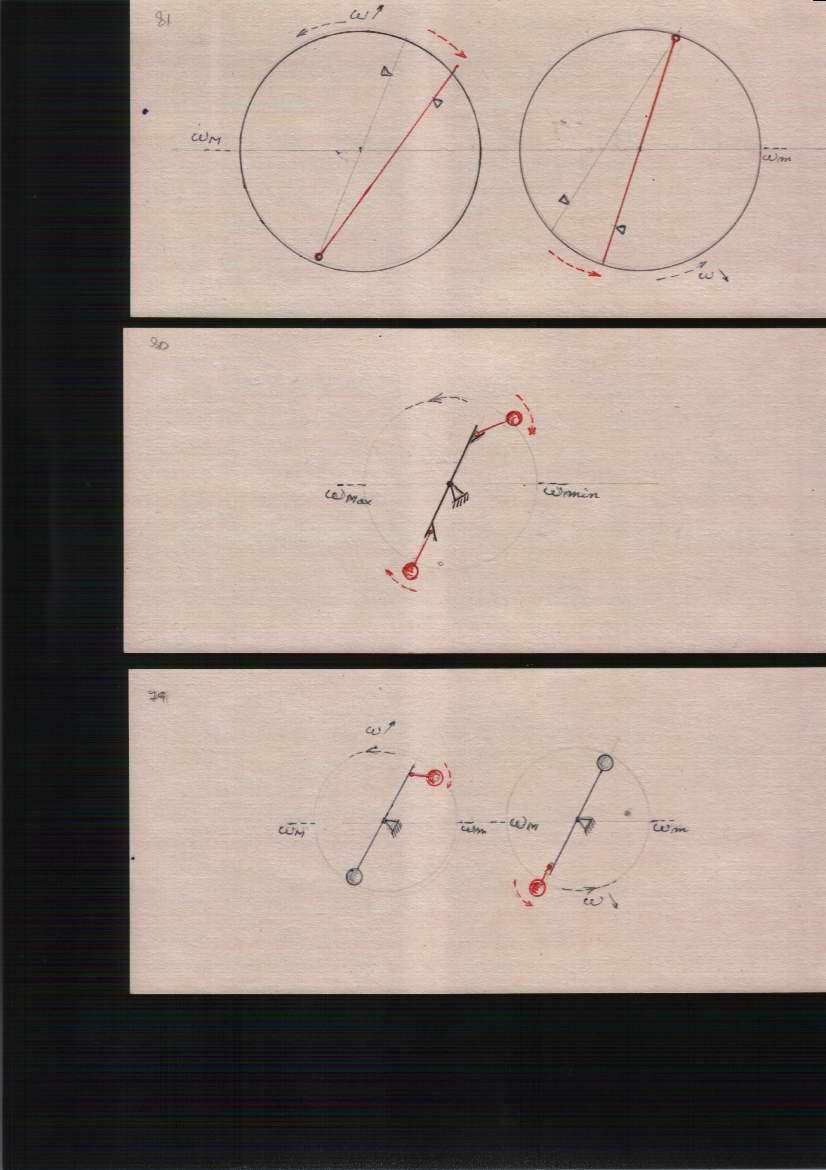 81
ω↗
ωM
ωm
ω↘
80
ωMax
ωmin
79
ω↗
ωM
ωm
ωM
ωm
ω↘